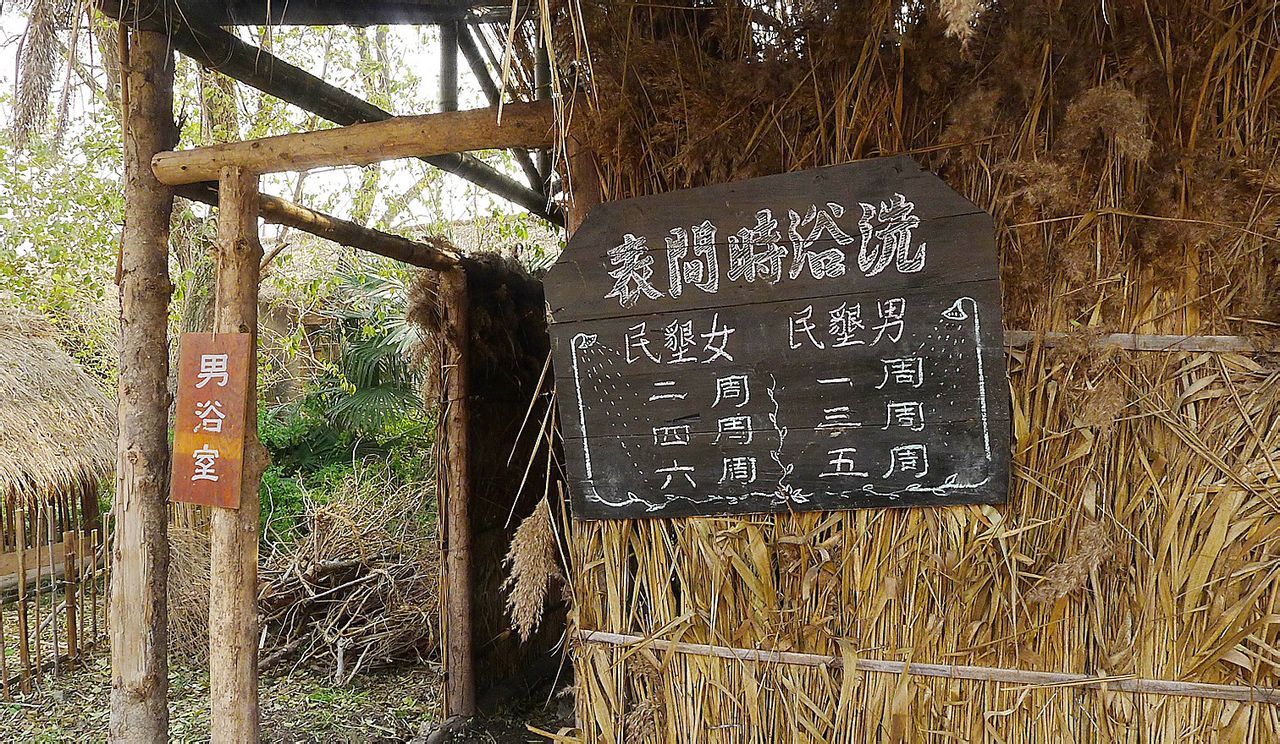 洗浴時間表
男墾民 女墾民
周一 周二
周三 周四
周五 周六
男浴室